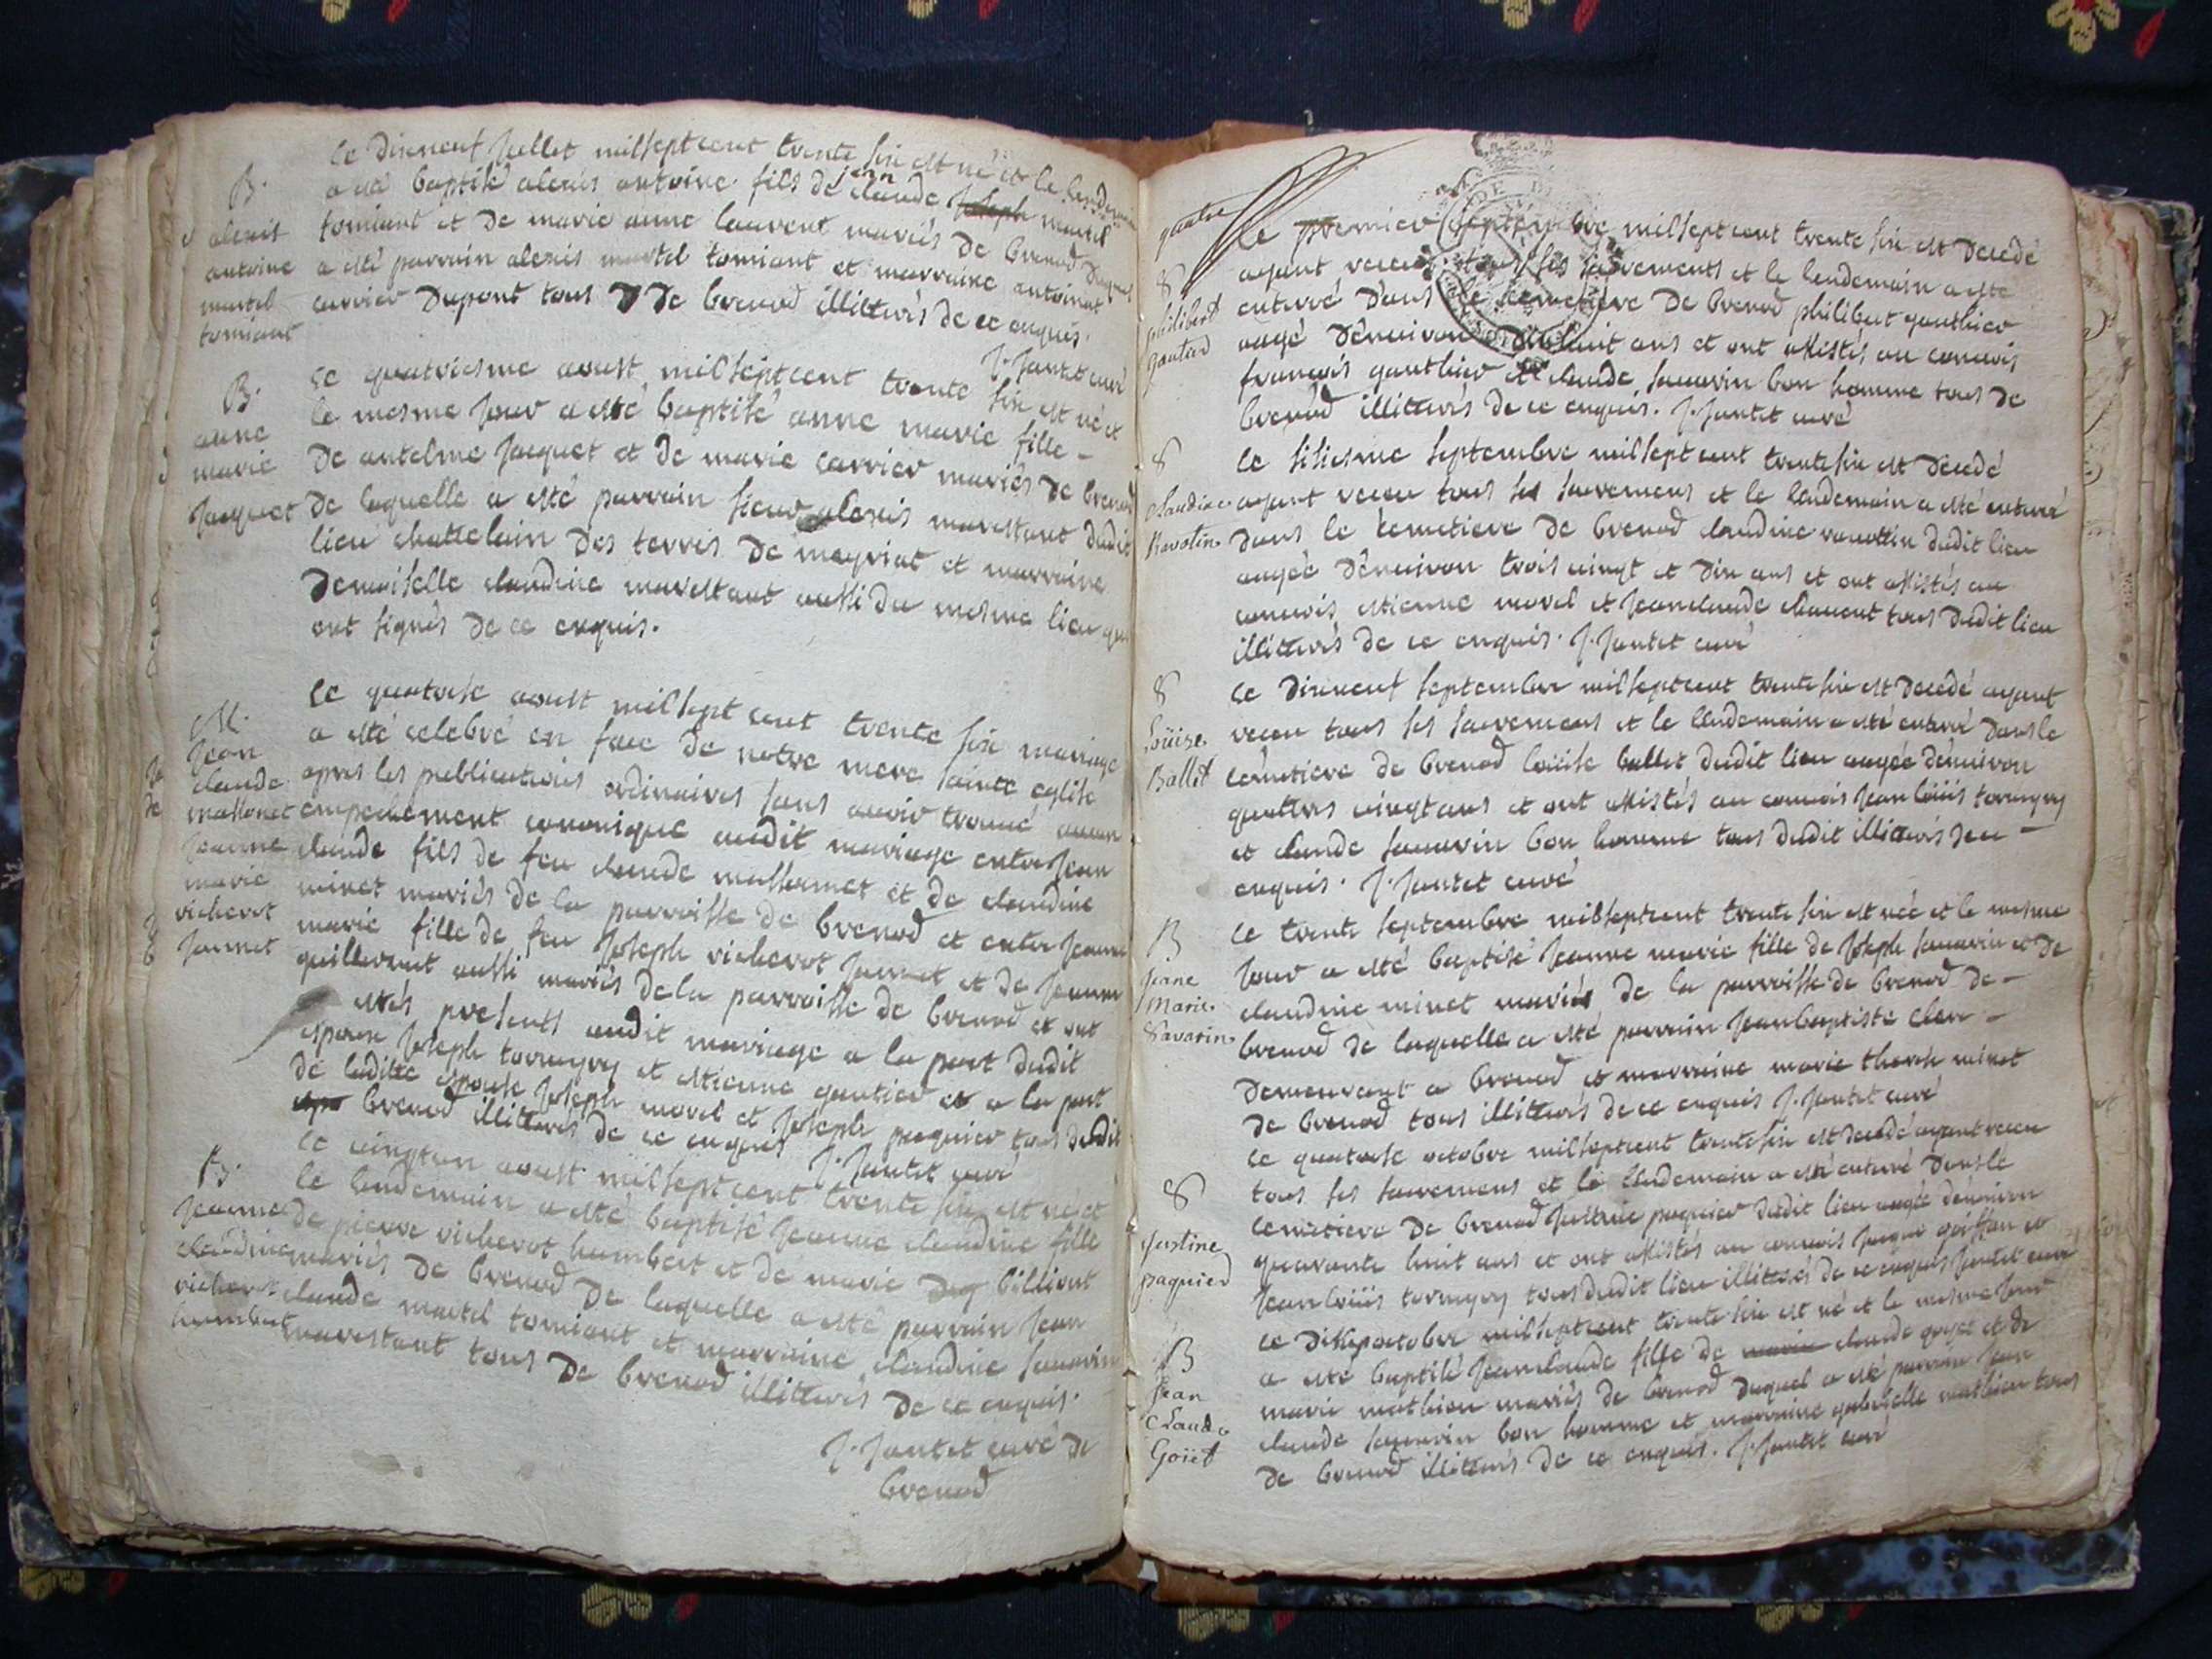 B.
alexis
antoine
martel
tomiant
le dixneuf Jullet milsept cent trente six est né et le lendemain
a esté baptisé alexis antoine fils de jean claude Joseph martel
tomiant et de marie anne laurent mariés de brenod duquel
a esté parrain alexis martel tomiant et marraine antoinet
carrier dupont tous de brenod illitterés de ce enquis.
J. Jantet curé
B.
anne
marie
Jaquet
le quatriesme aoust milseptcent trente six est né et
le mesme Jour a esté baptisé anne marie fille
de antelme Jaquet et de marie carrier mariés de brenod
de laquelle a esté parrain sieur alexis marestant dudit
lieu chattelain des terres de meyriat et marraine
demoiselle claudine marestant aussi du mesme lieu qui
ont signés de ce enquis.
M.
Jean
claude
massonet
Jeanne
marie
vicherot
Jannet
le quatorse aoust milsept cent trente six mariage
a esté celebré en face de notre mere sainte eglise
apres les publications ordinaires sans avoir trouvé aucun
empechement canonique audit mariage entre Jean
claude fils de feu claude massonnet et de claudine
minet mariés de la parroisse de brenod et entre Jeanne
marie fille de feu Joseph vicherot Jannet et de Jeanne
guillermet aussi mariés de la parroisse de brenod et ont
estés presents audit mariage a la part dudit
espoux Joseph tornuyry et estienne gautier et a la part
de laditte espouse Joseph morel et Joseph paquier tous dudit
brenod illitterés de ce enquis J. Jantet curé
B.
Jeanne
claudine
vicherot
humbert
le vingtun aoust milseptcent trente six est né et
le lendemain a esté baptisé Jeanne claudine fille
de pierre vicherot humbert et de marie billiont
mariés de brenod de laquelle a esté parrain Jean
claude martel tomiant et marraine claudine sauarin
marestant tous de brenod illitterés de ce enquis.
J. Jantet curé de
brenod
quatre
8
philibert
gautier
le premier septembre milsept cent trente six est decedé
ayant receu tous ses sacrements et le lendemain a esté
enterré dans le cemetiere de brenod philibert gauthier
aagé d'enuiron dixhuit ans et ont assistés au conuois
françois gauthier et claude sauarin bon homme tous de
brenod illitterés de ce enquis. J. Jantet curé
8
claudine
Ravotin
le sixiesme septembre milsept cent trente six est decedé
ayant receu tous ses sacremens et le lendemain a esté enterré
dans le cemetiere de brenod claudine rauottin dudit lieu
aagée d'enuiron trois vingt et dix ans et ont assistés au
conuois estienne morel et Jeanclaude chauent tous dudit lieu
illitterés de ce enquis. J. Jantet curé
8
Loüise
Ballet
le dixneuf septembre milseptcent trente six est decedé ayant
receu tous ses sacremens et le lendemain a esté enterré dans le
cemetiere de brenod loüise ballet dudit lieu aagée d'enuiron
quattres vingt ans et ont assistés au conuois Jean loüis tornuyry
et claude sauarin bon homme tous dudit illiterés de ce
enquis. J. Jantet curé
B
Jeane
Marie
Savarin
le trente septembre milseptcent trente six est née et le mesme
Jour a esté baptisé Jeanne marie fille de Joseph sauarin et de
claudine minet mariés de la parroisse de brenod de
brenod de laquelle a esté parrain Jean baptiste clerc
demeurant a brenod et marraine marie therese minet
de brenod tous illitterés de ce enquis J. Jantet curé
8
Justine
paquier
le quatorse octobre milseptcent trente six est decedé ayant receu
tous ses sacremens et le lendemain a esté enterré dans le
cemetiere de brenod Justine paquier dudit lieu aagée d'enuiron
quarante huit ans et ont assistés au conuois Jaque goiffon et
Jean loüis tornuyry tous dudit lieu illitterés de ce enquis Jantet curé
B
Jean
claude
Goiet
le dixsept octobre milseptcent trente six est né et le mesme Jour
a esté baptisé Jeanclaude fille de marie claude goyet et de
marie mathieu mariés de brenod duquel a esté parrain Jean
claude sauarin bon homme et marraine gabrielle mathieu tous
de brenod illitterés de ce enquis. J. Jantet curé